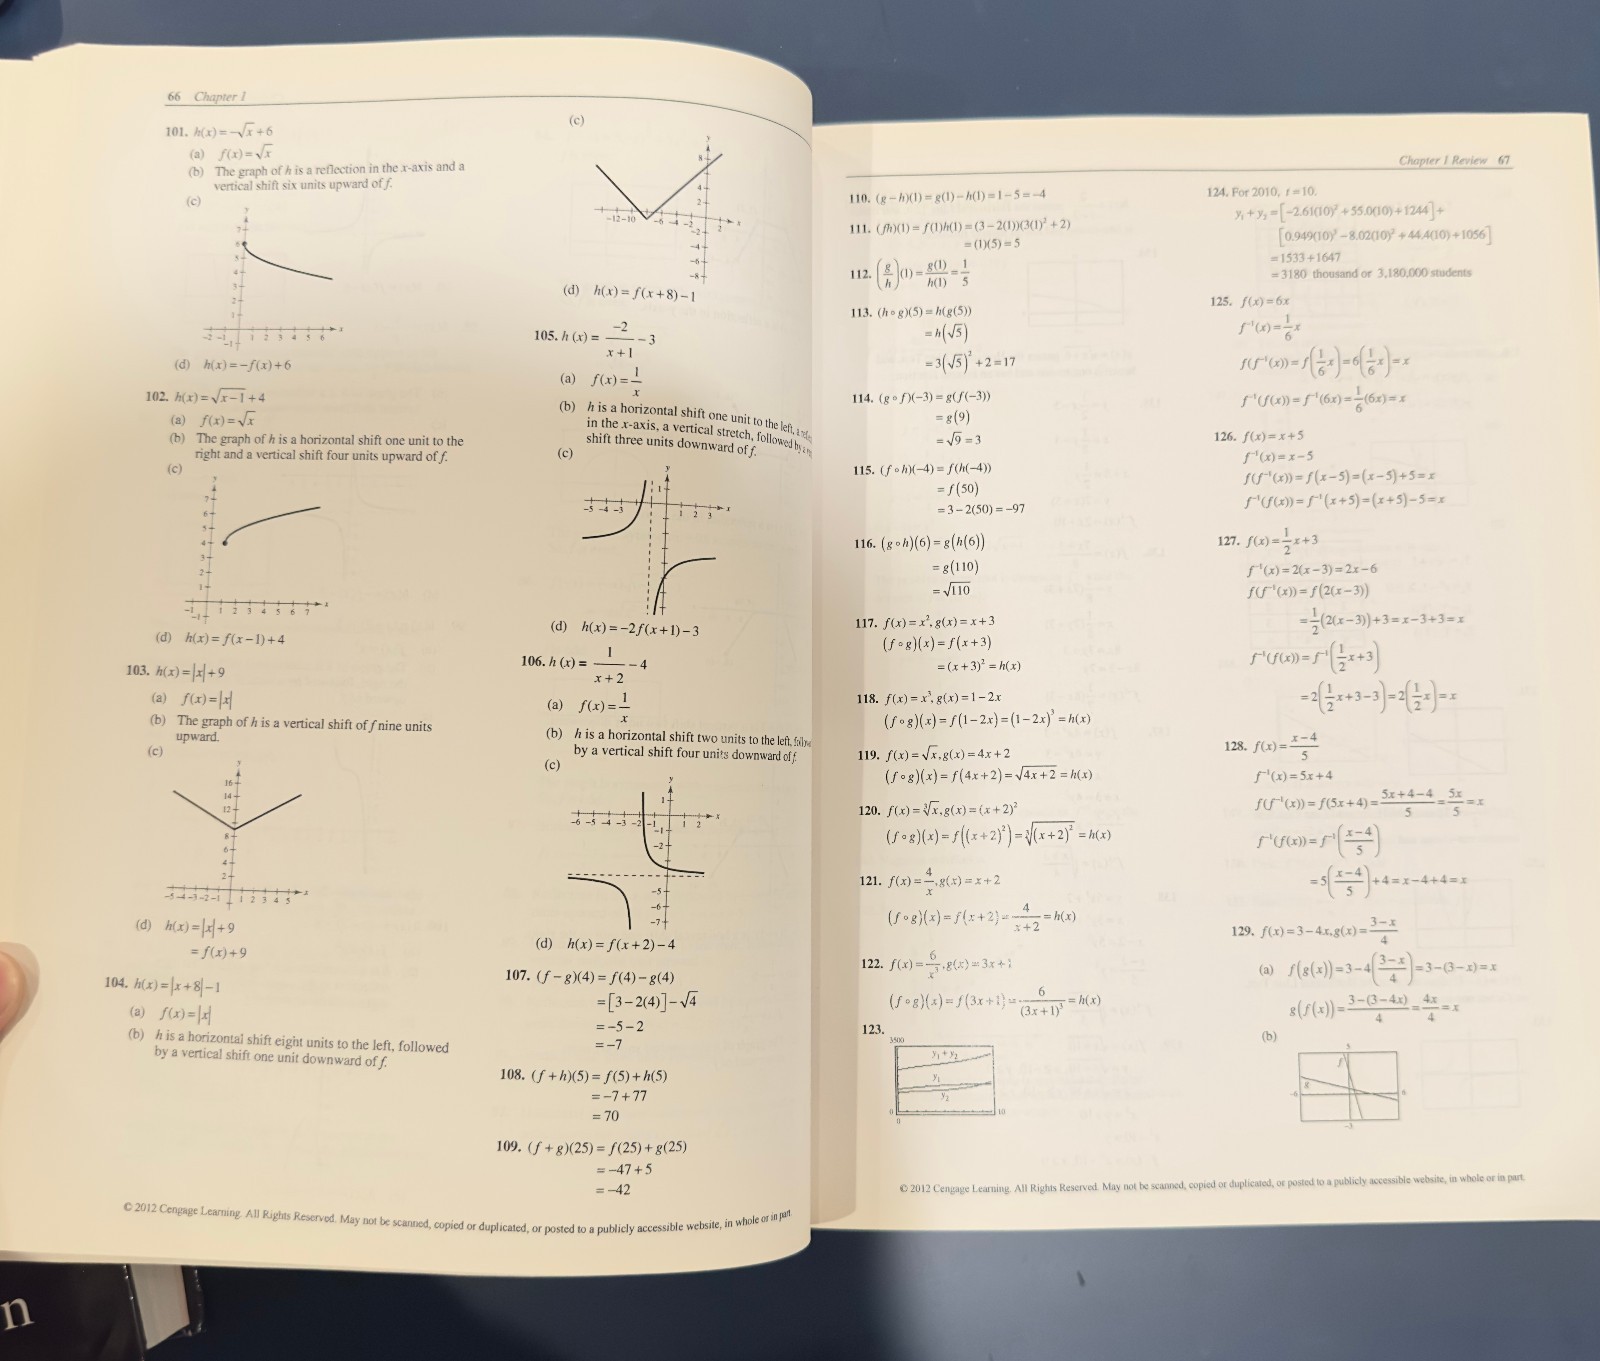 66 Chapter 1
101. h(x) = −√x + 6
(a) f(x) = √x
(b) The graph of h is a reflection in the x-axis and a
vertical shift six units upward of f.
(c)
(d) h(x) = −f(x) + 6
102. h(x) = √x−1 + 4
(a) f(x) = √x
(b) The graph of h is a horizontal shift one unit to the
right and a vertical shift four units upward of f.
(c)
(d) h(x) = f(x − 1) + 4
103. h(x) = |x| + 9
(a) f(x) = |x|
(b) The graph of h is a vertical shift of f nine units
upward.
(c)
(d) h(x) = |x| + 9
= f(x) + 9
104. h(x) = |x + 8| − 1
(a) f(x) = |x|
(b) h is a horizontal shift eight units to the left, followed
by a vertical shift one unit downward of f.
(c)
(d) h(x) = f(x + 8) − 1
105. h (x) = −2/(x + 1) − 3
(a) f(x) = 1/x
(b) h is a horizontal shift one unit to the left, a
in the x-axis, a vertical stretch, followed by a
shift three units downward of f.
(c)
(d) h(x) = −2f(x + 1) − 3
106. h (x) = 1/(x + 2) − 4
(a) f(x) = 1/x
(b) h is a horizontal shift two units to the left,
by a vertical shift four units downward of f
(c)
(d) h(x) = f(x + 2) − 4
107. (f − g)(4) = f(4) − g(4)
= [3 − 2(4)] − √4
= −5 − 2
= −7
108. (f + h)(5) = f(5) + h(5)
= −7 + 77
= 70
109. (f + g)(25) = f(25) + g(25)
= −47 + 5
= −42
© 2012 Cengage Learning. All Rights Reserved. May not be scanned, copied or duplicated, or posted to a publicly accessible website, in whole or in part.
Chapter 1 Review 67
110. (g − h)(1) = g(1) − h(1) = 1 − 5 = −4
111. (fh)(1) = f(1)h(1) = (3 − 2(1))(3(1)² + 2)
= (1)(5) = 5
112. (g/h)(1) = g(1)/h(1) = 1/5
113. (h ∘ g)(5) = h(g(5))
= h(√5)
= 3(√5)² + 2 = 17
114. (g ∘ f)(−3) = g(f(−3))
= g(9)
= √9 = 3
115. (f ∘ h)(−4) = f(h(−4))
= f(50)
= 3 − 2(50) = −97
116. (g ∘ h)(6) = g(h(6))
= g(110)
= √110
117. f(x) = x², g(x) = x + 3
(f ∘ g)(x) = f(x + 3)
= (x + 3)² = h(x)
118. f(x) = x³, g(x) = 1 − 2x
(f ∘ g)(x) = f(1 − 2x) = (1 − 2x)³ = h(x)
119. f(x) = √x, g(x) = 4x + 2
(f ∘ g)(x) = f(4x + 2) = √4x + 2 = h(x)
120. f(x) = ∛x, g(x) = (x + 2)²
(f ∘ g)(x) = f((x + 2)²) = ∛(x + 2)² = h(x)
121. f(x) = 4/x, g(x) = x + 2
(f ∘ g)(x) = f(x + 2) = 4/(x + 2) = h(x)
122. f(x) = 6/x³, g(x) = 3x + 1
(f ∘ g)(x) = f(3x + 1) = 6/(3x + 1)³ = h(x)
123.
3500
y₁ + y₂
y₁
y₂
0
10
0
124. For 2010, t = 10.
y₁ + y₂ = [−2.61(10)² + 55.0(10) + 1244] +
[0.949(10)³ − 8.02(10)² + 44.4(10) + 1056]
= 1533 + 1647
= 3180 thousand or 3,180,000 students
125. f(x) = 6x
f⁻¹(x) = 1/6 x
f(f⁻¹(x)) = f(1/6 x) = 6(1/6 x) = x
f⁻¹(f(x)) = f⁻¹(6x) = 1/6 (6x) = x
126. f(x) = x + 5
f⁻¹(x) = x − 5
f(f⁻¹(x)) = f(x − 5) = (x − 5) + 5 = x
f⁻¹(f(x)) = f⁻¹(x + 5) = (x + 5) − 5 = x
127. f(x) = 1/2 x + 3
f⁻¹(x) = 2(x − 3) = 2x − 6
f(f⁻¹(x)) = f(2(x − 3))
= 1/2 (2(x − 3)) + 3 = x − 3 + 3 = x
f⁻¹(f(x)) = f⁻¹(1/2 x + 3)
= 2(1/2 x + 3 − 3) = 2(1/2 x) = x
128. f(x) = (x − 4)/5
f⁻¹(x) = 5x + 4
f(f⁻¹(x)) = f(5x + 4) = (5x + 4 − 4)/5 = 5x/5 = x
f⁻¹(f(x)) = f⁻¹((x − 4)/5)
= 5((x − 4)/5) + 4 = x − 4 + 4 = x
129. f(x) = 3 − 4x, g(x) = (3 − x)/4
(a) f(g(x)) = 3 − 4((3 − x)/4) = 3 − (3 − x) = x
g(f(x)) = (3 − (3 − 4x))/4 = 4x/4 = x
(b)
5
f
g
−6
−3
© 2012 Cengage Learning. All Rights Reserved. May not be scanned, copied or duplicated, or posted to a publicly accessible website, in whole or in part.
n